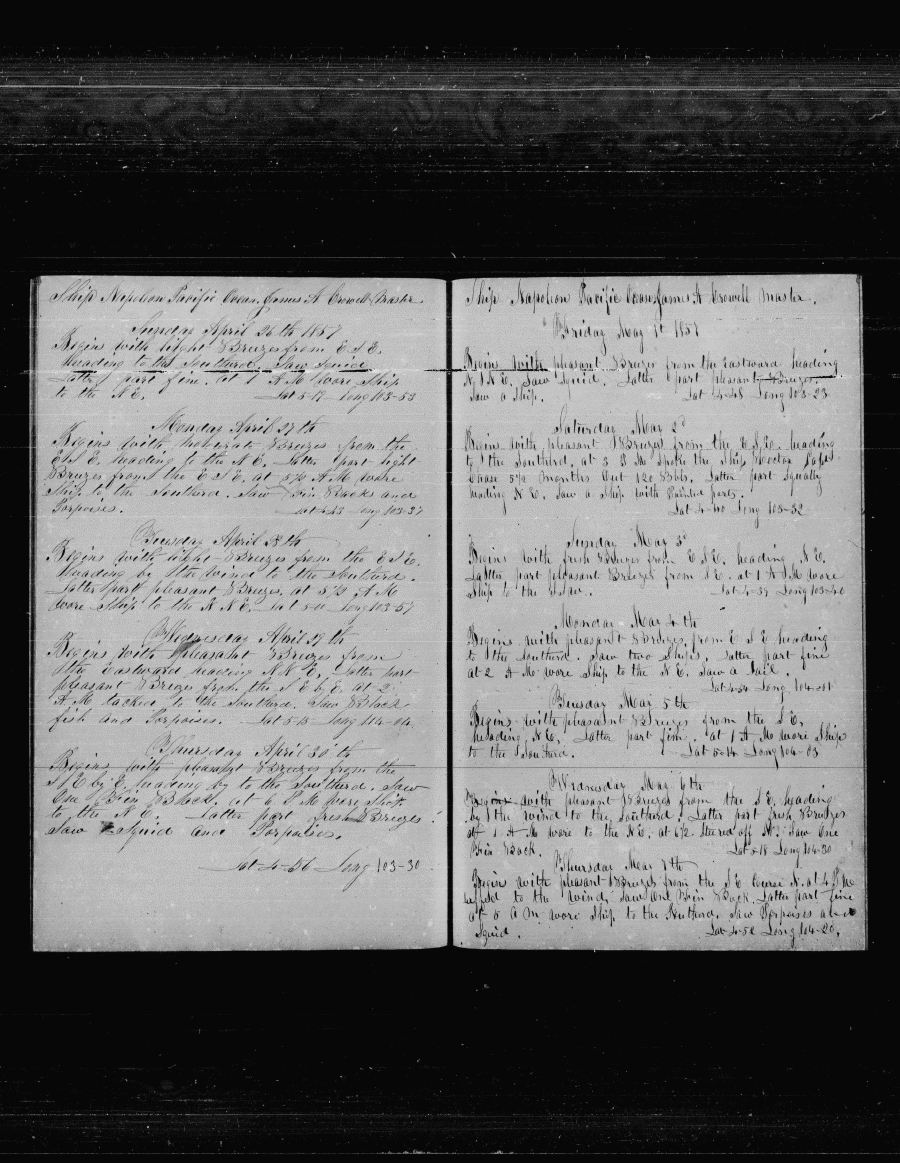 Ship Napoleon Pacific Ocean James A Crowell Master
Sunday April 26th 1857
Begins with light Breezes from E S E.
heading to the Southerd. Saw Squid
Latter part fine. at 1 A M wore Ship
to the N E. Lat 5-17 Long 103-53
Monday April 27th
Begins with moderate Breezes from the
E S E. heading to the N E. Latter part light
Breezes from the E S E. at 5/30 A M wore
Ship to the Southerd. Saw Fin Backs and
Porpoises. Lat 4-43 Long 103-37
Tuesday April 28th
Begins with light Breezes from the E S E.
heading by the wind to the Southerd.
Latter part pleasant Breezes. at 5/30 A M
wore Ship to the N N E. Lat 5-11 Long 103-57
Wednesday April 29th
Begins with pleasant Breezes from
the Eastward heading N N E. Latter part
pleasant Breezes from the S E b E. at 2
A M tacked to the Southerd. Saw Black
fish and Porpoises. Lat 5-15 Long 104-04
Thursday April 30th
Begins with pleasant Breezes from the
S E by E. heading by to the Southerd. Saw
One Fin Back. at 6 P M wore Ship
to the N E. Latter part fresh Breezes.
Saw Squid and Porpoises.
Lat 4-56 Long 103-30
Ship Napoleon Pacific Ocean James A Crowell Master.
Friday May 1st 1857
Begin with pleasant Breezes from the Eastward heading
N N E. Saw Squid. Latter part pleasant Breezes.
Saw a Ship. Lat 4-48 Long 103-23
Saturday May 2d
Begin with pleasant Breezes from the E S E. heading
to the Southerd. at 3 P M Spoke the Ship Hector Capt
Chase 5 1/2 months Out 120 Bbls. Latter part Squally
heading N E. Saw a Ship with Painted ports.
Lat 4-40 Long 103-32
Sunday May 3d
Begins with fresh Breezes from E S E. heading N E.
Latter part pleasant Breezes from S E. at 1 A M wore
Ship to the S.d.w. Lat 4-39 Long 103-40
Monday May 4th
Begins with pleasant Breezes from E S E heading
to the Southerd. Saw two Ships. Latter part fine
at 2 A M wore Ship to the N E. Saw a Sail.
Lat 4-54 Long 104-01
Tuesday May 5th
Begins with pleasant Breezes from the S E,
heading N E. Latter part fine. at 1 A M wore Ship
to the Southerd. Lat 5-14 Long 104-03
Wednesday May 6th
Begins with pleasant Breezes from the S E. heading
by the wind to the Southerd. Latter part fresh Breezes
at 1 A M wore to the N E. at 6/2 Steered off N. Saw One
Fin Back. Lat 5-18 Long 104-30
Thursday May 7th
Begin with pleasant Breezes from the S E Course N. at 4 P M
luffed to the wind. Saw One Fin Back. Latter part fine
at 5 A M wore Ship to the Southerd. Saw Porpoises and
Squid. Lat 4-52 Long 104-20.